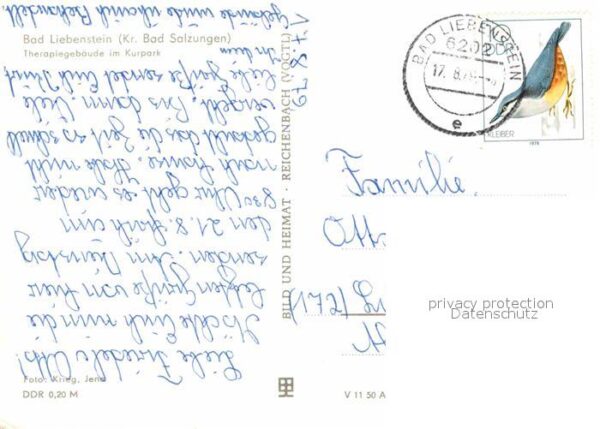 Bad Liebenstein (Kr. Bad Salzungen)
Therapiegebäude im Kurpark
Liebe Friedel u. Otto!
Möchte Euch nun die
letzten Grüße von hier
senden. Am Dienstag
den 21.8. früh um
8 30 Uhr geht es wieder
nach Hause. Habe nicht
gedacht das die Zeit so schnell
vergeht. Bis dann. Viele
liebe Grüße sendet Euch
In dem
Gebäude wurde ich auch Behandelt.
17.8.79
Foto: Krieg, Jena
DDR 0,20 M
BILD UND HEIMAT · REICHENBACH (VOGTL)
V 11 50 A
BAD LIEBENSTEIN
6202
17. 8. 79
e
DDR
KLEIBER
1979
Familie
Otto
(271)
privacy protection
Datenschutz